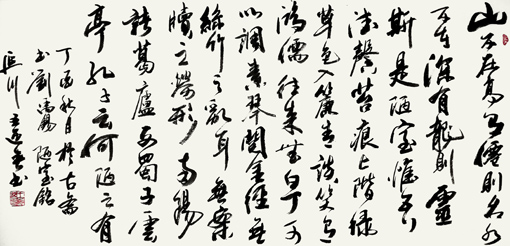 山不在高有僊則名水
不在深有龍則靈
斯是陋室惟吾
德馨苔痕上階綠
草色入簾青談笑有
鴻儒往來無白丁可
以調素琴閱金經無
絲竹之亂耳無案
牘之勞形南陽
諸葛廬西蜀子雲
亭孔子云何陋之有
丁酉秋月於古
書劉禹錫陋室銘
書